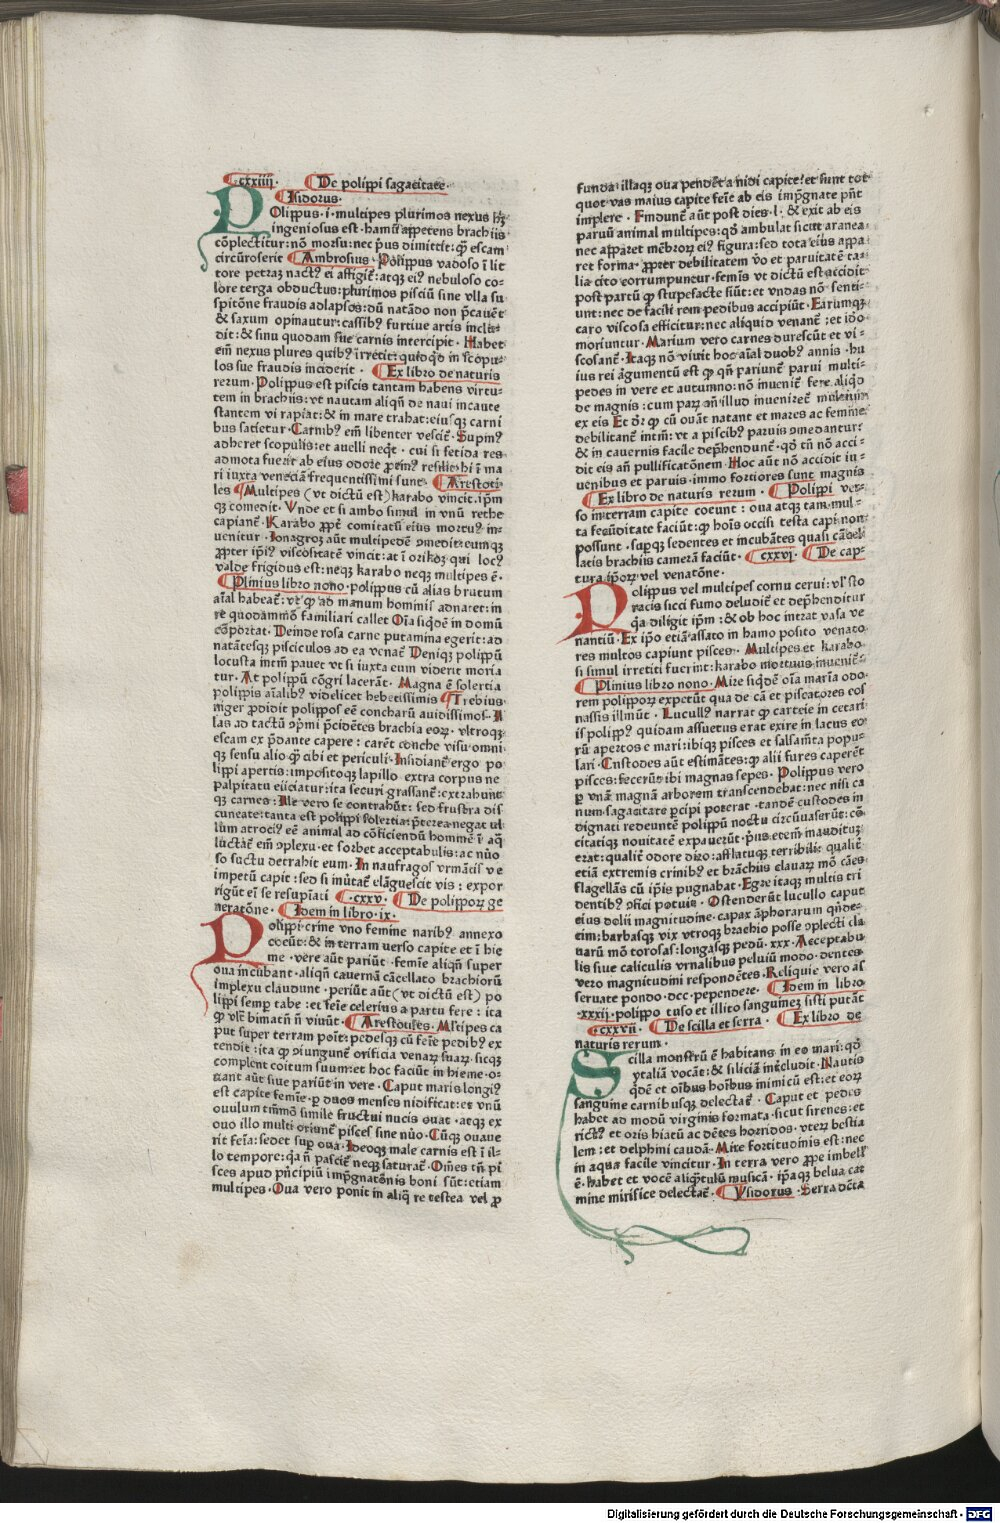 cxxiiij. De polippi sagacitate.
Isidorus.
Polippus .i. multipes plurimos nexus hz
ingeniosus est. hamū appetens brachiis
cōplectitur: nō morsu: nec pus dimittit: qȝ escam
circūroserit Ambrosius. Polippus vadoso ī lit
tore petraȝ nactꝰ ei affigit̄: atqȝ eiꝰ nebuloso co-
lore terga obductus: plurimos pisciū sine vlla su
spitōne fraudis adlapsos: dū natādo non p̄cauēt
& saxum opinantur: cassibꝰ furtiue artis inclu-
dit: & sinu quodam sue carnis intercipit. Habet
em̄ nexus plures quibꝰ irretit: quidqd in scopu-
los sue fraudis inciderit. Ex libro de naturis
rerum. Polippus est piscis tantam habens virtu-
tem in brachiis: vt nautam aliqn̄ de naui incaute
stantem vi rapiat: & in mare trahat: eiusqȝ carni
bus satietur. Carnibꝰ em̄ libenter vescit̄. Supinꝰ
adheret scopulis: et auelli neqt. cui si fetida res
admota fuerit ab eius odore ptinꝰ resilit: hi ī ma
ri iuxta veneciā frequentissimi sunt. Arestoti
les Multipes (vt dictū est) karabo vincit. ipm̄
qȝ comedit. Vnde et si ambo simul in vnū rethe
capiant̄. Karabo ppt̄ comitatū eius mortuꝰ in-
uenitur. Fonagroȝ aūt multipedē ↄmedit: eumqȝ
ppter ipiꝰ viscositatē vincit: at ī orikoȝ qui locꝰ
valde frigidus est: neqȝ karabo neqȝ multipes ē.
Plinius libro nono. polippus cū alias brutum
aīal habeat̄: vt qȝ ad manum hominis adnatet: in
re quodammō familiari callet Oīa siqdē in domū
cōportat. Deinde rosa carne putamina egerit: ad
natātesqȝ pisciculos ad ea venat̄ Deniqȝ polippū
locusta intm̄ pauet vt si iuxta eum viderit moria
tur. At polippū cōgri lacerāt. Magna ē solertia
polippis aīalibꝰ videlicet hebetissimis Trebius
niger pdidit polippos eē concharū auidissimos. Il
las ad tactū ↄpmi p̄cidētes brachia eoȝ. vltroqȝ
escam ex pdante capere: carēt conche visu omni
qȝ sensu alio qȝ cibi et periculi. Insidiant̄ ergo po
lippi apertis: impositoqȝ lapillo extra corpus ne
palpitatu eiiciatur: ita securi grassant̄: extrahunt
qȝ carnes: Ille vero se contrahūt: sed frustra dis
cuneate: tanta est polippi solertia: pterea negat ul
lum atrociꝰ eē animal ad cōficiendū hominē ī aq̄
luctāt̄ em̄ ↄplexu. et sorbet acceptabulis: ac nūo
so suctu detrahit eum. In naufragos vrinātis ve
impetū capit: sed si inūtat̄ elāguescit vis: expor
rigūt eī se resupīati cxxv. De polippoȝ ge
neratōne. Idem in libro .ix.
Polippi crine vno femine naribꝰ annexo
coeūt: & in terram uerso capite et ī hie
me. vere aūt pariūt. femīe aliqn̄ super
oua incubant. aliqn̄ cauernā cācellato brachiorū
implexu claudunt. periūt aūt (vt dictū est) po
lippi semp tabe: et feīe celerius a partu fere: ita
qȝ vlt̄ bimatū n̄ viuūt. Arestoteles. Mltipes ca
put super terram poīt: pedesqȝ cū feīe pedibꝰ ex
tendit: ita qȝ ↄiungunt̄ orificia venaȝ suaȝ. sicqȝ
complent coitum suum: et hoc faciūt in hieme. o-
uant aūt siue pariūt in vere. Caput maris longiꝰ
est capite femīe. p duos menses nidificat: et vnū
ouulum tm̄mō simile fructui nucis ouat. atqȝ ex
ouo illo multi oriunt̄ pisces sine nūo. Cūqȝ ouaue
rit feīa: sedet sup oua. Ideoqȝ male carnis est ī il-
lo tempore: qa n̄ pascit̄ neqȝ saturat̄. Om̄es tn̄ pi
sces apud pncipiū impgnatōnis boni sūt: etiam
multipes. Oua vero ponit in aliq̄ re testea vel p
funda: illaqȝ oua pendēt a nidi capite: et sunt tot
quot vas maius capite feīe ab eis impgnate pn̄t
implere. Fındunt̄ aūt post dies .l. & exit ab eis
paruū animal multipes: qd ambulat sicut aranea
nec apparet mēbroȝ eiꝰ figura: sed tota eius appa
ret forma. ppter debilitatem vo et paruitatē ta-
lia cito corrumpuntur. femīs vt dictū est accidit
post partū qȝ stupefacte fiūt: et vndas nō senti-
unt: nec de facili rem pedibus accipiūt. Earumqȝ
caro viscosa efficitur: nec aliquid venant̄: et ido
moriuntur. Marium vero carnes durescūt et vi-
scosant̄. Itaqȝ nō viuit hoc aīal duobꝰ annis. hu
ius rei argumentū est qȝ qn̄ pariunt̄ parui multi-
pedes in vere et autumno: nō inuenit̄ fere aliqd
de magnis: cum paȝ an̄ illud inuenirēt̄ multum
ex eis Et dȝ qȝ cū ouāt natant et mares ac femine
debilitant̄ intm̄: vt a piscibꝰ paruis ↄmedantur:
& in cauernis facile dephendunt̄. qd tn̄ nō acci-
dit eis an̄ pullificatōnem. Hoc aūt nō accidit iu-
uenibus et paruis. immo fortiores sunt magnis
Ex libro de naturis rerum. Polippi ver-
so in terram capite coeunt: oua atqȝ tam mul-
ta fecūditate faciūt: qȝ hoīs occisi testa capi non
possunt. supqȝ sedentes et incubātes quasi cācel-
latis brachiis camerā faciūt. cxxvj. De cap-
tura ipoȝ vel venatōne.
Polippus vel multipes cornu cerui: vl' sto
racis sicci fumo deludit̄ et dephenditur
qa diligit ipm̄: & ob hoc intrat vasa ve
nantiū. Ex ipo etiā assato in hamo posito venato
res multos capiunt pisces. Multipes et karabo
si simul irretiti fuerint: karabo mortuus inuenit̄.
Plinius libro nono. Mire siqdē oīa maria odo
rem polippoȝ expetūt qua de cā et piscatores eos
nassis illinūt. Lucullꝰ narrat qȝ carteie in cetari
is polippꝰ quidam assuetus erat exire in lacus eo
rū apertos e mari: ibiqȝ pisces et salsamīta popu
lari. Custodes aūt estimātes: qȝ alii fures caperēt
pisces: fecerūt ibi magnas sepes. Polippus vero
p vnā magnā arborem transcendebat: nec nisi ca
num sagacitate pcipi poterat. tandē custodes in
dignati redeuntē polippū noctu circūuaserūt: cō
citatiqȝ nouitatē expauerūt. pus etem̄ inaudituȝ
erat: qualit̄ odore diro: afflatuqȝ terribili: qualit̄
etiā extremis crinibꝰ et brāchiis clauaȝ mō cāes
flagellās cū ipis pugnabat. Egre itaqȝ multis tri
dentibꝰ ↄfici potuit. Ostenderūt lucullo caput
eius dolii magnitudine. capax āphorarum qnde-
cim: barbasqȝ vix vtroqȝ brachio posse ↄplecti cla
uarū mō torosas: longasqȝ pedū .xxx. Acceptabu
lis siue caliculis vrnalibus peluiū modo. dentes
vero magnitudini respondētes. Reliquie vero as
seruate pondo .dcc. pependere. Idem in libro
.xxxij. polippo tuso et illito sanguinez sisti putāt
cxxvii. De scilla et serra. Ex libro de
naturis rerum.
Scilla monstrū ē habitans in eo mari: qd
ytaliā vocāt̄: & siliciā int̄cludit. Nautis
qdē et oībus hoībus inimicū est: et eoȝ
sanguine carnibusqȝ delectat̄. Caput et pedes
habet ad modū virginis formata. sicut sirenes: et
rictꝰ et oris hiatū ac dētes horridos. vteȝ bestia
lem: et delphini caudā. Mire fortitudinis est: nec
in aqua facile vincitur. In terra vero ppe imbell'
ē. habet et vocē aliqntulū musicā. ipaqȝ belua car
mine mirifice delectat̄. Ysidorus. Serra dc̄ta
Digitalisierung gefördert durch die Deutsche Forschungsgemeinschaft - DFG